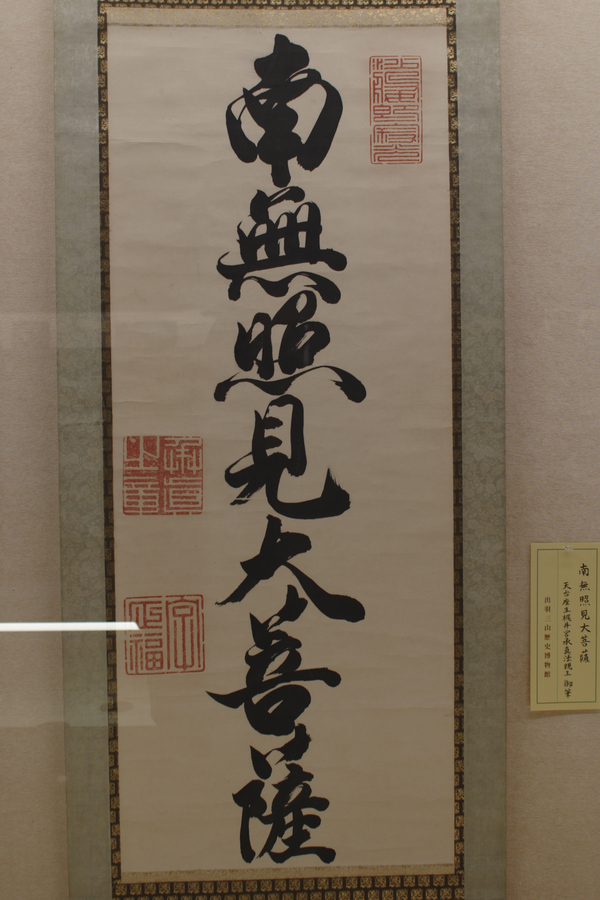 南無照見大菩薩
南無照見大菩薩
天台座主梶井宮承真法親王御筆
出羽三山歴史博物館